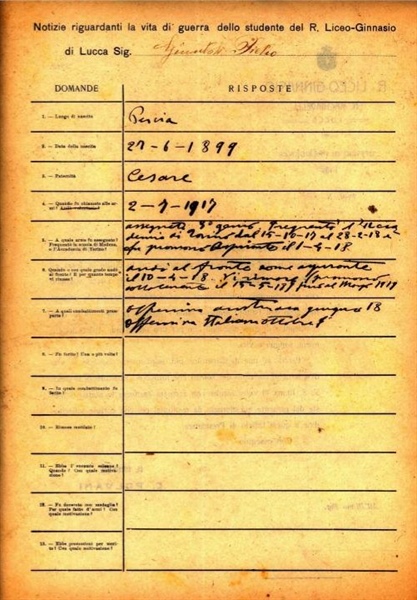 Notizie riguardanti la vita di guerra dello studente del R. Liceo-Ginnasio
di Lucca Sig. Julio
DOMANDE RISPOSTE
1. — Luogo di nascita Pescia
2. — Data della nascita 27-6-1899
3. — Paternità Cesare
4. — Quando fu chiamato alle armi? 2-7-1917
5. — A quale arma fu assegnato? Frequentò la scuola di Modena, o l'Accademia di Torino?
assegnato 3° genio Frequentò l'Acca
demia di Torino dal 15-10-17 al 28-2-18 e
fu promosso Aspirante il 1-4-18
6. — Quando e con quale grado andò al fronte? E per quanto tempo vi rimase?
andò al fronte come aspirante
il 10-4-18. Vi rimase
sottotenente il fino al 1919
7. — A quali combattimenti prese parte?
offensiva austriaca giugno 18
offensiva Italiana ottobre
8. — Fu ferito? Una o più volte?
9. — In quale combattimento fu ferito?
10. — Rimase mutilato?
11. — Ebbe l'encomio solenne? Quando? Con quale motivazione?
12. — Fu decorato con medaglia? Per quale fatto d'armi? Con quale motivazione?
13. — Ebbe promozioni per merito? Con quale motivazione?